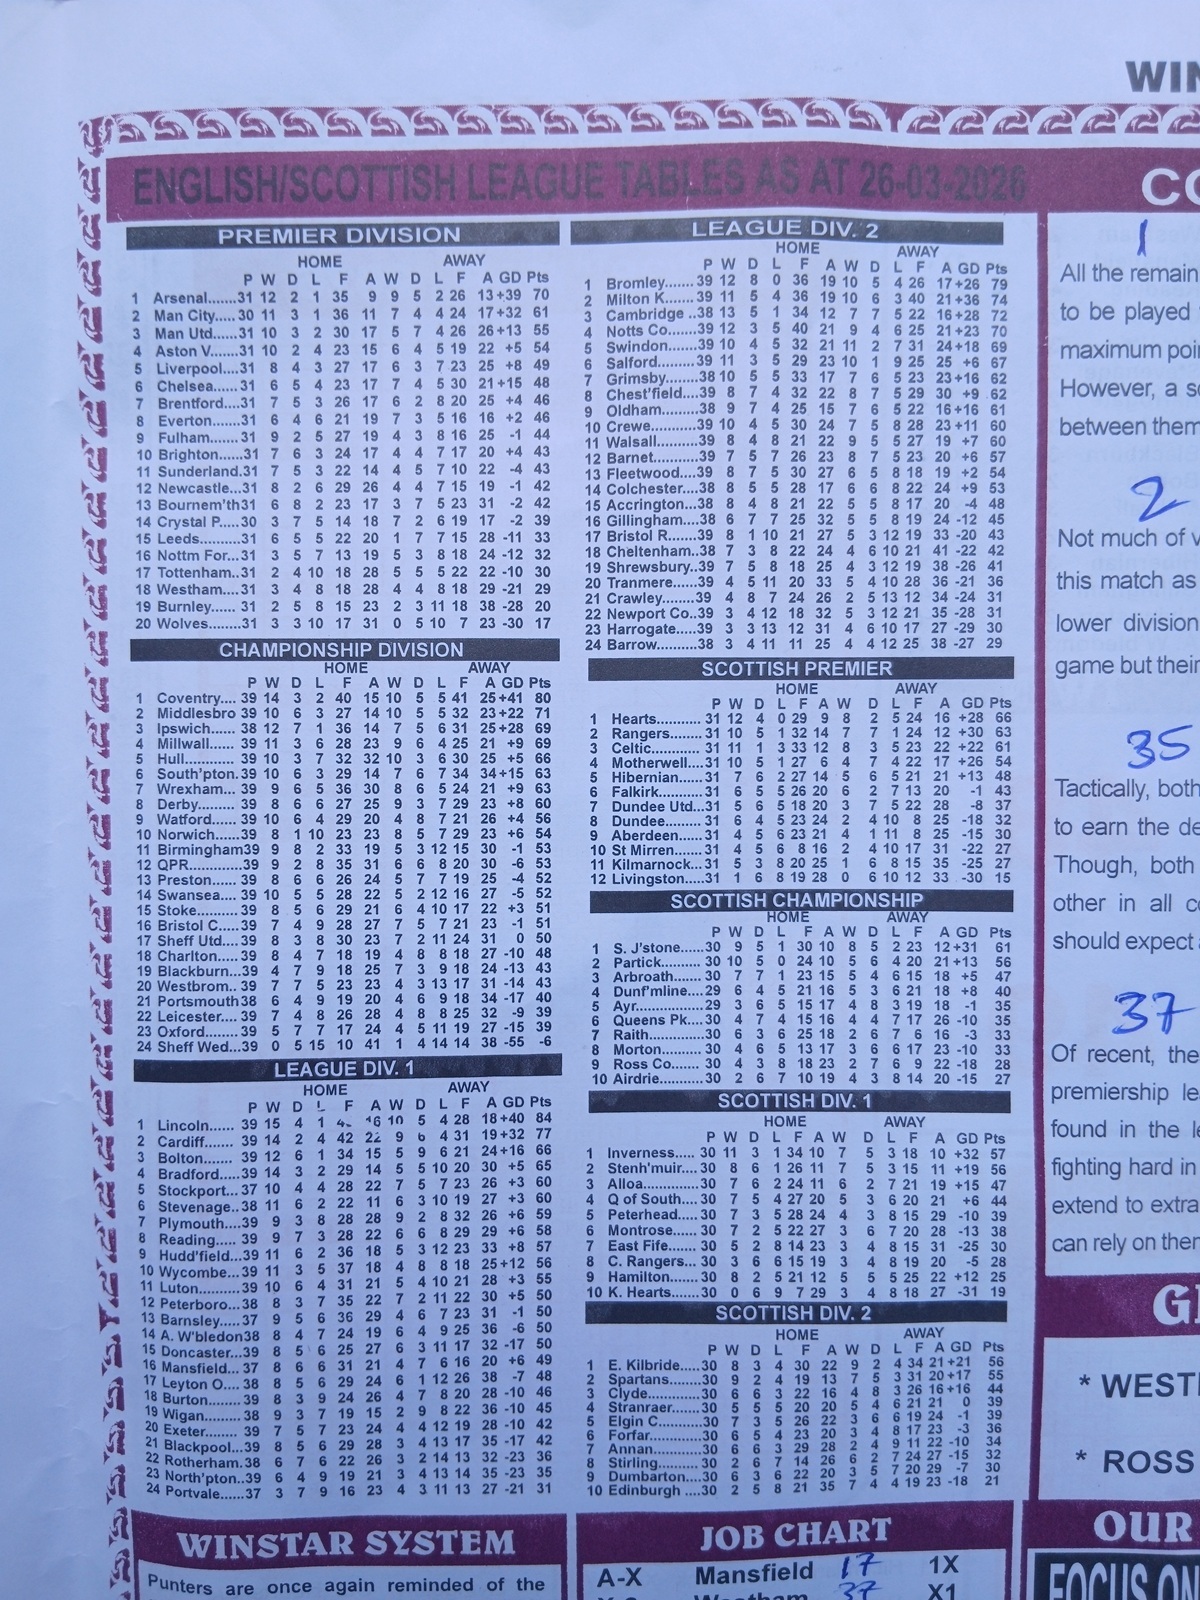 WIN
ENGLISH/SCOTTISH LEAGUE TABLES AS AT 26-03-2026
PREMIER DIVISION
HOME AWAY
P W D L F A W D L F A GD Pts
1 Arsenal......31 12 2 1 35 9 9 5 2 26 13 +39 70
2 Man City.....30 11 3 1 36 11 7 4 4 24 17 +32 61
3 Man Utd.....31 10 3 2 30 17 5 7 4 26 26 +13 55
4 Aston V.....31 10 2 4 23 15 6 4 5 19 22 +5 54
5 Liverpool....31 8 4 3 27 17 6 3 7 23 25 +8 49
6 Chelsea.....31 6 5 4 23 17 7 4 5 30 21 +15 48
7 Brentford....31 7 5 3 26 17 6 2 8 20 25 +4 46
8 Everton......31 6 4 6 21 19 7 3 5 16 16 +2 46
9 Fulham......31 9 2 5 27 19 4 3 8 16 25 -1 44
10 Brighton.....31 7 6 3 24 17 4 4 7 17 20 +4 43
11 Sunderland.31 7 5 3 22 14 4 5 7 10 22 -4 43
12 Newcastle...31 8 2 6 29 26 4 4 7 15 19 -1 42
13 Bournem'th31 6 8 2 23 17 3 7 5 23 31 -2 42
14 Crystal P....30 3 7 5 14 18 7 2 6 19 17 -2 39
15 Leeds.......31 6 5 5 22 20 1 7 7 15 28 -11 33
16 Nottm For...31 3 5 7 13 19 5 3 8 18 24 -12 32
17 Tottenham..31 2 4 10 18 28 5 5 5 22 22 -10 30
18 Westham....31 3 4 8 18 28 4 4 8 18 29 -21 29
19 Burnley......31 2 5 8 15 23 2 3 11 18 38 -28 20
20 Wolves.......31 3 3 10 17 31 0 5 10 7 23 -30 17
CHAMPIONSHIP DIVISION
HOME AWAY
P W D L F A W D L F A GD Pts
1 Coventry.... 39 14 3 2 40 15 10 5 5 41 25 +41 80
2 Middlesbro 39 10 6 3 27 14 10 5 5 32 23 +22 71
3 Ipswich..... 38 12 7 1 36 14 7 5 6 31 25 +28 69
4 Millwall..... 39 11 3 6 28 23 9 6 4 25 21 +9 69
5 Hull.......... 39 10 3 7 32 32 10 3 6 30 25 +5 66
6 South'pton. 39 10 6 3 29 14 7 6 7 34 34 +15 63
7 Wrexham... 39 9 6 5 36 30 8 6 5 24 21 +9 63
8 Derby........ 39 8 6 6 27 25 9 3 7 29 23 +8 60
9 Watford..... 39 10 6 4 29 20 4 8 7 21 26 +4 56
10 Norwich..... 39 8 1 10 23 23 8 5 7 29 23 +6 54
11 Birmingham39 9 8 2 33 19 5 3 12 15 30 -1 53
12 QPR............39 9 2 8 35 31 6 6 8 20 30 -6 53
13 Preston...... 39 8 6 6 26 24 5 7 7 19 25 -4 52
14 Swansea.... 39 10 5 5 28 22 5 2 12 16 27 -5 52
15 Stoke......... 39 8 5 6 29 21 6 4 10 17 22 +3 51
16 Bristol C..... 39 7 4 9 28 27 7 5 7 21 23 -1 51
17 Sheff Utd.... 39 8 3 8 30 23 7 2 11 24 31 0 50
18 Charlton..... 39 8 4 7 18 19 4 8 8 18 27 -10 48
19 Blackburn... 39 4 7 9 18 25 7 3 9 18 24 -13 43
20 Westbrom.. 39 7 7 5 23 23 4 3 13 17 31 -14 43
21 Portsmouth38 6 4 9 19 20 4 6 9 18 34 -17 40
22 Leicester.... 39 7 4 8 26 28 4 8 8 25 32 -9 39
23 Oxford........ 39 5 7 7 17 24 4 5 11 19 27 -15 39
24 Sheff Wed...39 0 5 15 10 41 1 4 14 14 38 -55 -6
LEAGUE DIV. 1
HOME AWAY
P W D L F A W D L F A GD Pts
1 Lincoln...... 39 15 4 1 16 10 5 4 28 18 +40 84
2 Cardiff....... 39 14 2 4 42 22 9 6 4 31 19 +32 77
3 Bolton....... 39 12 6 1 34 15 5 9 6 21 24 +16 66
4 Bradford.... 39 14 3 2 29 14 5 5 10 20 30 +5 65
5 Stockport... 37 10 4 4 28 22 7 5 7 23 26 +3 60
6 Stevenage.. 38 11 6 2 22 11 6 3 10 19 27 +3 60
7 Plymouth... 39 9 3 8 28 28 9 2 8 32 26 +6 59
8 Reading..... 39 9 7 3 28 22 6 6 8 29 29 +6 58
9 Hudd'field...39 11 6 2 36 18 5 3 12 23 33 +8 57
10 Wycombe...39 11 3 5 37 18 4 8 8 18 25 +12 56
11 Luton.........39 10 6 4 31 21 5 4 10 21 28 +3 55
12 Peterboro...38 8 3 7 35 22 7 2 11 22 30 +5 50
13 Barnsley.....37 9 5 6 36 29 4 6 7 23 31 -1 50
14 A. W'bledon38 8 4 7 24 19 6 4 9 25 36 -6 50
15 Doncaster...39 8 5 6 25 27 6 3 11 17 32 -17 50
16 Mansfield....37 8 6 6 31 21 4 7 6 16 20 +6 49
17 Leyton O.... 38 8 5 6 29 24 6 1 12 26 38 -7 48
18 Burton........ 39 8 3 9 24 26 4 7 8 20 28 -10 46
19 Wigan........ 38 9 3 7 19 15 2 9 8 22 36 -10 45
20 Exeter........ 39 7 5 7 23 24 4 4 12 19 28 -10 42
21 Blackpool... 39 8 5 6 29 28 3 4 13 17 35 -17 42
22 Rotherham. 38 6 7 6 22 26 3 2 14 13 32 -23 36
23 North'pton.. 39 6 4 9 19 21 3 4 13 14 35 -23 35
24 Portvale......37 3 7 9 16 23 4 3 11 13 27 -21 31
WINSTAR SYSTEM
Punters are once again reminded of the
LEAGUE DIV. 2
HOME AWAY
P W D L F A W D L F A GD Pts
1 Bromley....... 39 12 8 0 36 19 10 5 4 26 17 +26 79
2 Milton K....... 39 11 5 4 36 19 10 6 3 40 21 +36 74
3 Cambridge ..38 13 5 1 34 12 7 7 5 22 16 +28 72
4 Notts Co......39 12 3 5 40 21 9 4 6 25 21 +23 70
5 Swindon......39 10 4 5 32 21 11 2 7 31 24 +18 69
6 Salford........39 11 3 5 29 23 10 1 9 25 25 +6 67
7 Grimsby......38 10 5 5 33 17 7 6 5 23 23 +16 62
8 Chest'field...39 8 7 4 32 22 8 7 5 29 30 +9 62
9 Oldham.......38 9 7 4 25 15 7 6 5 22 16 +16 61
10 Crewe.........39 10 4 5 30 24 7 5 8 28 23 +11 60
11 Walsall........39 8 4 8 21 22 9 5 5 27 19 +7 60
12 Barnet.........39 7 5 7 26 23 8 7 5 23 20 +6 57
13 Fleetwood....39 8 7 5 30 27 6 5 8 18 19 +2 54
14 Colchester...38 8 5 5 28 17 6 6 8 22 24 +9 53
15 Accrington...38 8 4 8 21 22 5 5 8 17 20 -4 48
16 Gillingham...38 6 7 7 25 32 5 5 8 19 24 -12 45
17 Bristol R......39 8 1 10 21 27 5 3 12 19 33 -20 43
18 Cheltenham..38 7 3 8 22 24 4 6 10 21 41 -22 42
19 Shrewsbury..39 7 5 8 18 25 4 3 12 19 38 -26 41
20 Tranmere.....39 4 5 11 20 33 5 4 10 28 36 -21 36
21 Crawley.......39 4 8 7 24 26 2 5 13 12 34 -24 31
22 Newport Co..39 3 4 12 18 32 5 3 12 21 35 -28 31
23 Harrogate.....39 3 3 13 12 31 4 6 10 17 27 -29 30
24 Barrow..........38 3 4 11 11 25 4 4 12 25 38 -27 29
SCOTTISH PREMIER
HOME AWAY
P W D L F A W D L F A GD Pts
1 Hearts........... 31 12 4 0 29 9 8 2 5 24 16 +28 66
2 Rangers........ 31 10 5 1 32 14 7 7 1 24 12 +30 63
3 Celtic............ 31 11 1 3 33 12 8 3 5 23 22 +22 61
4 Motherwell.... 31 10 5 1 27 6 4 7 4 22 17 +26 54
5 Hibernian...... 31 7 6 2 27 14 5 6 5 21 21 +13 48
6 Falkirk.......... 31 6 5 5 26 20 6 2 7 13 20 -1 43
7 Dundee Utd... 31 5 6 5 18 20 3 7 5 22 28 -8 37
8 Dundee......... 31 6 4 5 23 24 2 4 10 8 25 -18 32
9 Aberdeen...... 31 4 5 6 23 21 4 1 11 8 25 -15 30
10 St Mirren...... 31 4 5 6 8 16 2 4 10 17 31 -22 27
11 Kilmarnock... 31 5 3 8 20 25 1 6 8 15 35 -25 27
12 Livingston.....31 1 6 8 19 28 0 6 10 12 33 -30 15
SCOTTISH CHAMPIONSHIP
HOME AWAY
P W D L F A W D L F A GD Pts
1 S. J'stone......30 9 5 1 30 10 8 5 2 23 12 +31 61
2 Partick..........30 10 5 0 24 10 5 6 4 20 21 +13 56
3 Arbroath........30 7 7 1 23 15 5 4 6 15 18 +5 47
4 Dunf'mline....29 6 4 5 21 16 5 3 6 21 18 +8 40
5 Ayr................29 3 6 5 15 17 4 8 3 19 18 -1 35
6 Queens Pk....30 4 7 4 15 16 4 4 7 17 26 -10 35
7 Raith.............30 6 3 6 25 18 2 6 7 6 16 -3 33
8 Morton..........30 4 6 5 13 17 3 6 6 17 23 -10 33
9 Ross Co........30 4 3 8 18 23 2 7 6 9 22 -18 28
10 Airdrie..........30 2 6 7 10 19 4 3 8 14 20 -15 27
SCOTTISH DIV. 1
HOME AWAY
P W D L F A W D L F A GD Pts
1 Inverness...... 30 11 3 1 34 10 7 5 3 18 10 +32 57
2 Stenh'muir.... 30 8 6 1 26 11 7 5 3 15 11 +19 56
3 Alloa............. 30 7 6 2 24 11 6 2 7 21 19 +15 47
4 Q of South.... 30 7 5 4 27 20 5 3 6 20 21 +6 44
5 Peterhead..... 30 7 3 5 28 24 4 3 8 15 29 -10 39
6 Montrose...... 30 7 2 5 22 27 3 6 7 20 28 -13 38
7 East Fife....... 30 5 2 8 14 23 3 4 8 15 31 -25 30
8 C. Rangers... 30 3 6 6 15 19 3 4 8 19 20 -5 28
9 Hamilton....... 30 8 2 5 21 12 5 5 5 25 22 +12 25
10 K. Hearts...... 30 0 6 9 7 29 3 4 8 18 27 -31 19
SCOTTISH DIV. 2
HOME AWAY
P W D L F A W D L F A GD Pts
1 E. Kilbride.....30 8 3 4 30 22 9 2 4 34 21 +21 56
2 Spartans.......30 9 2 4 19 13 7 5 3 31 20 +17 55
3 Clyde............30 6 6 3 22 16 4 8 3 26 16 +16 44
4 Stranraer......30 5 5 5 20 20 5 4 6 21 21 0 39
5 Elgin C.........30 7 3 5 26 22 3 6 6 19 24 -1 39
6 Forfar...........30 6 5 4 23 20 3 4 8 17 23 -3 36
7 Annan..........30 6 6 3 29 28 2 4 9 11 22 -10 34
8 Stirling.........30 6 2 7 14 26 6 2 7 24 27 -15 32
9 Dumbarton...30 6 3 6 22 20 3 5 7 20 29 -7 30
10 Edinburgh....30 2 5 8 21 35 7 4 4 19 23 -18 21
JOB CHART
A-X Mansfield 17 1X
Westham 37 X1
CO
1
All the remain
to be played
maximum poin
However, a s
between them
2
Not much of v
this match as
lower division
game but their
35
Tactically, both
to earn the de
Though, both
other in all c
should expect
37
Of recent, the
premiership lea
found in the le
fighting hard in
extend to extra
can rely on them
G
* WEST
* ROSS
OUR
FOCUS ON